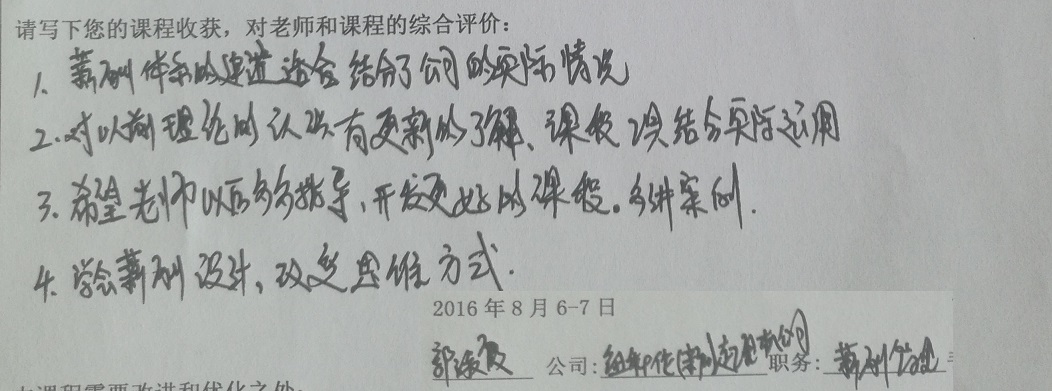 请写下您的课程收获，对老师和课程的综合评价：
1. 薪酬体系的建造适合结合了公司的实际情况
2. 对以前理论的认识有更新的了解、课程 结合实际运用
3. 希望老师以后多多指导、开发更好的课程。多讲案例.
4. 学会薪酬设计，改变思维方式.
2016年8月6-7日
公司: 职务: 薪酬
课程需要改进和优化之处: